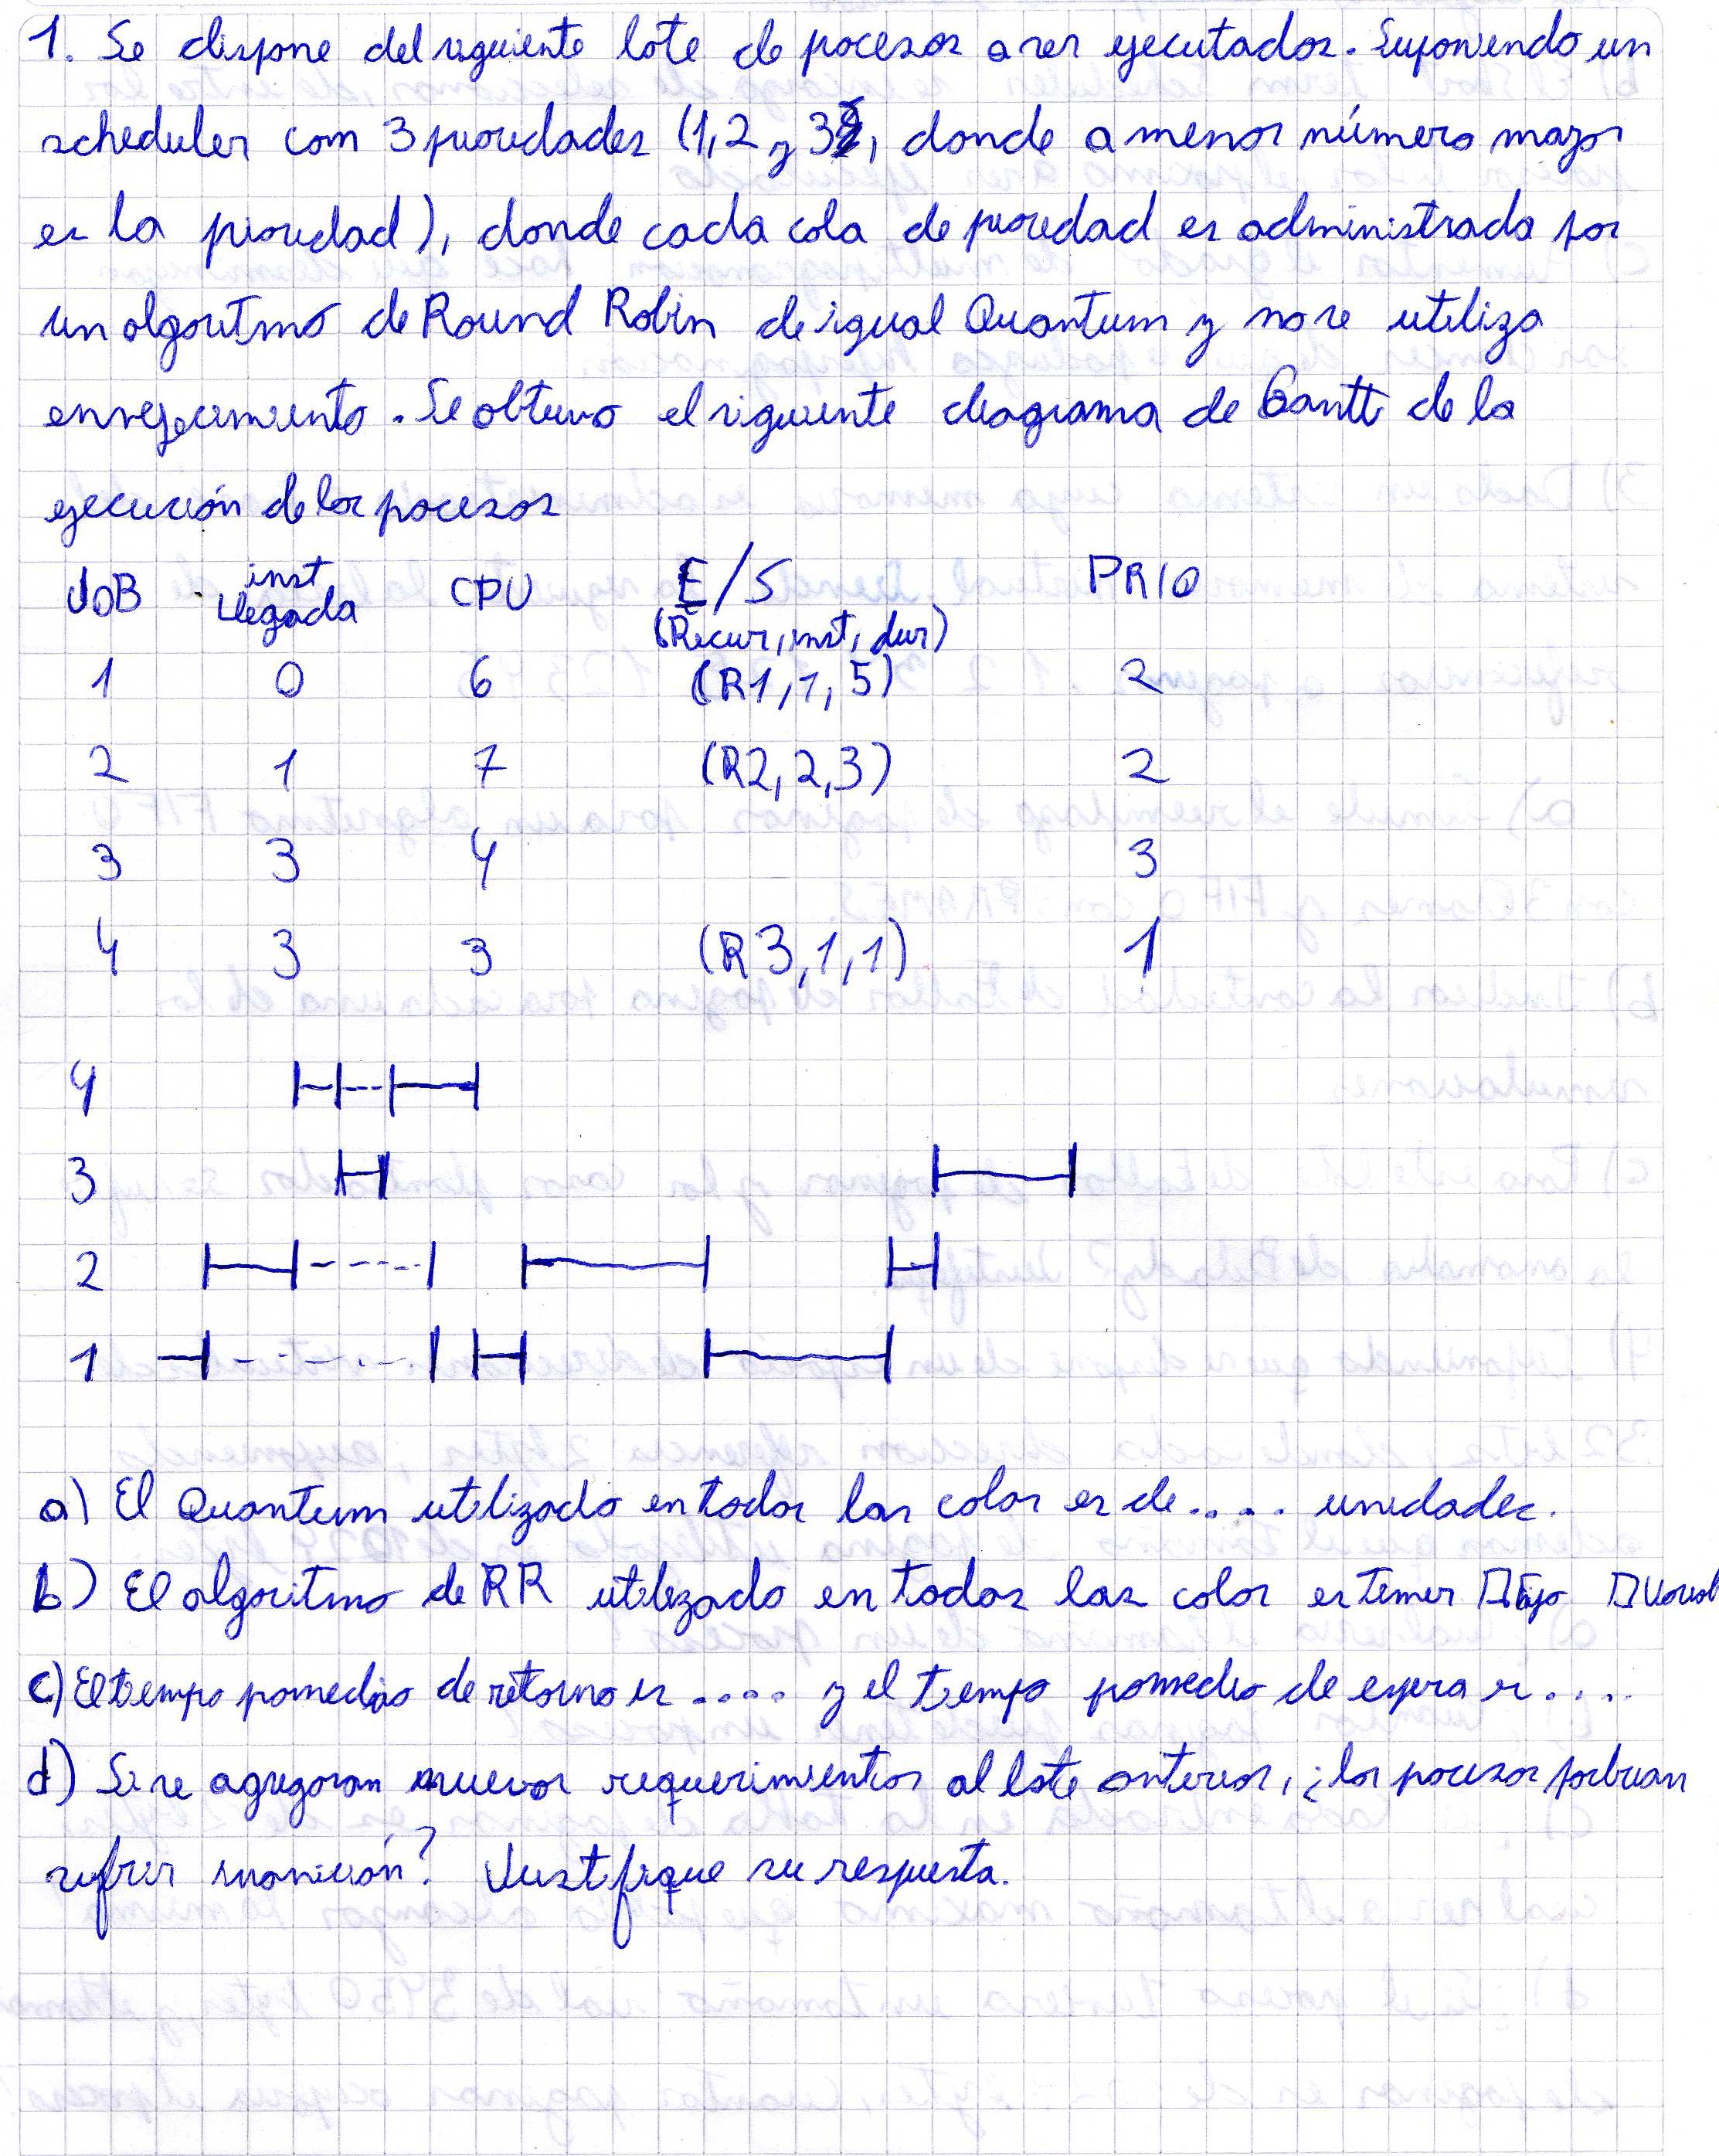 1. Se dispone del siguiente lote de pocesos a ser ejecutados. Suponiendo un
scheduler com 3 prioridades (1,2 y 3, donde a menor número mayor
es la prioridad), donde cada cola de prioridad es administrada por
un algoritmo de Round Robin de igual Quantum y no se utiliza
envejecimiento. Se obtuvo el siguiente diagrama de Gantt de la
ejecución de los procesos
JOB inst Llegada CPU E/S (Recur, inst, dur) PRIO
1 0 6 (R1, 1, 5) 2
2 1 7 (R2, 2, 3) 2
3 3 4 3
4 3 3 (R3, 1, 1) 1
4
3
2
1
a) El Quantum utilizado en todas las colas es de .... unidades.
b) El algoritmo de RR utilizado en todas las colas es timer □ Fijo □ Variab
c) El tiempo promedio de retorno es .... y el tiempo promedio de espera es ....
d) Si se agregaran nuevos requerimientos al lote anterior, ¿los procesos podrian
sufrir inanición? Justifique su respuesta.